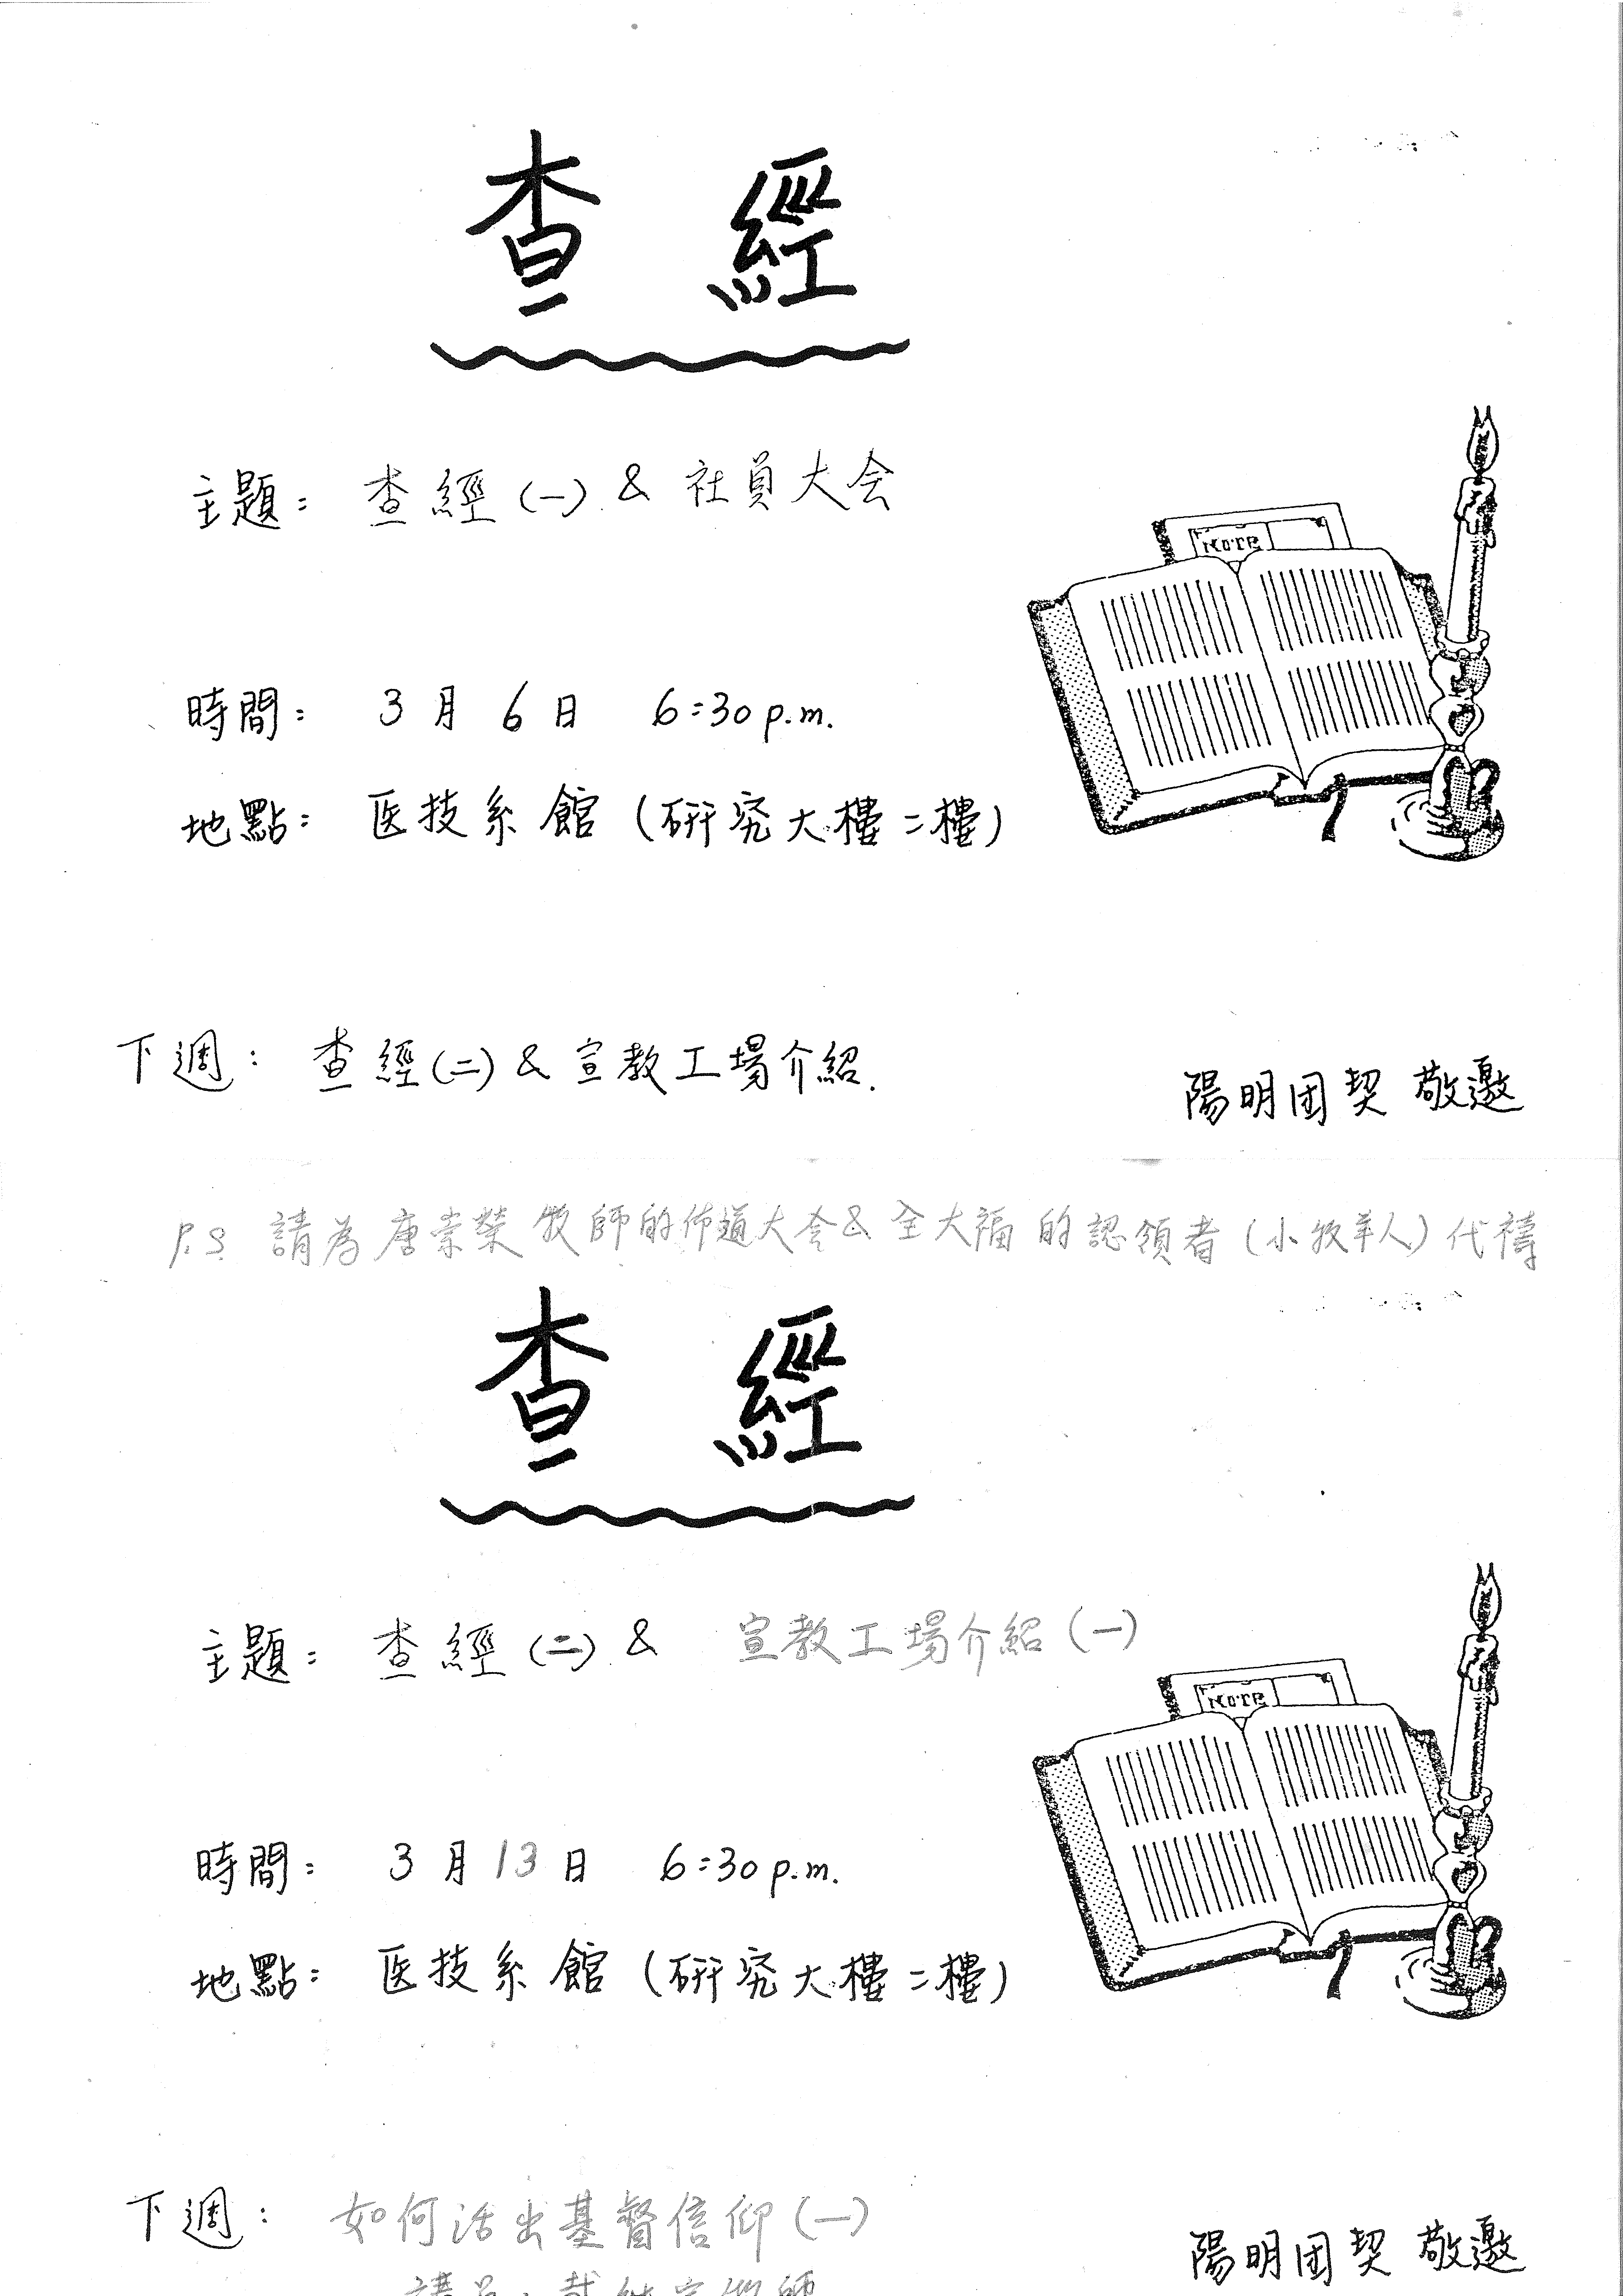 查經
主題：查經(一) & 社員大会
NOTE
時間：3月6日 6:30 p.m.
地點：医技系館(研究大樓二樓)
下週：查經(二) & 宣教工場介紹.
陽明団契 敬邀
P.S. 請為唐崇榮牧師的佈道大会 & 全大福的認領者(小牧羊人)代禱
查經
主題：查經(二) & 宣教工場介紹(一)
NOTE
時間：3月13日 6:30 p.m.
地點：医技系館(研究大樓二樓)
下週：如何活出基督信仰(一)
陽明団契 敬邀